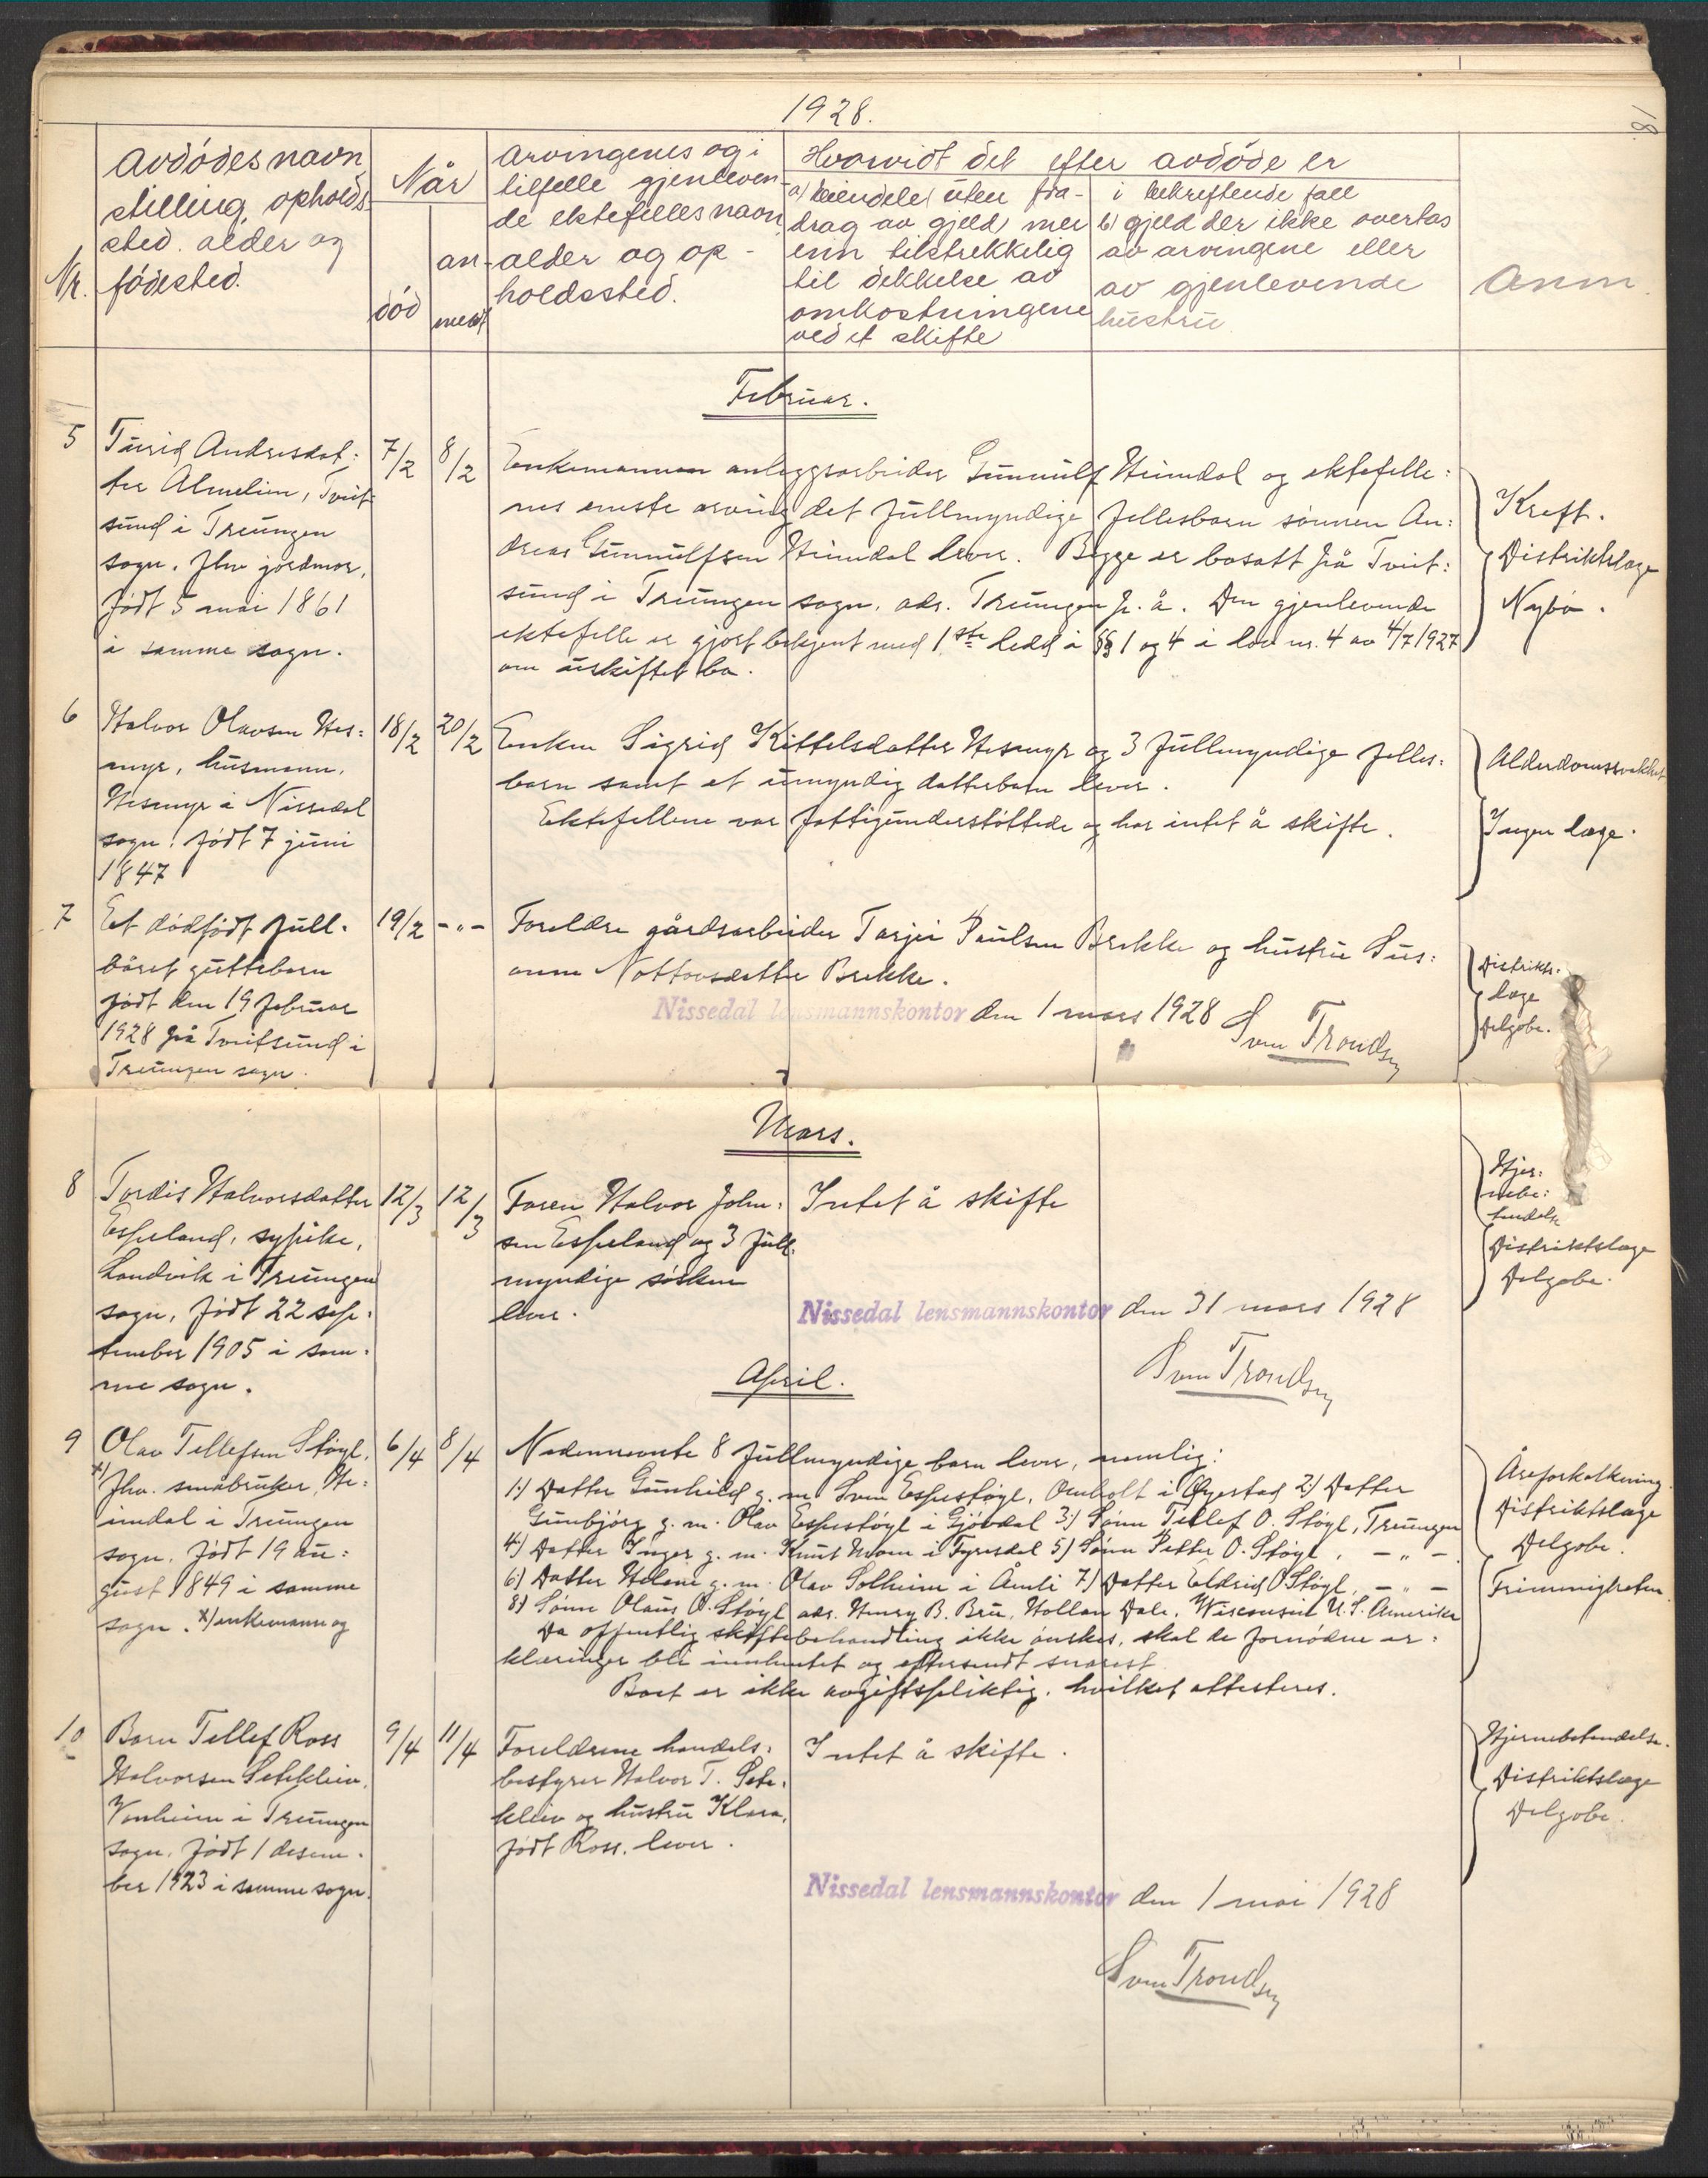 1928.
18.
Nr.
Avdødes navn
stilling, opholds-
sted. alder og
fødested.
Når
død
an-
meldt
Arvingenes og i
tilfelle gjenleven-
de ektefelles navn
alder og op-
holdssted.
Hvorvidt det efter avdøde er
a) eiendele uten fra-
drag av gjeld mer
enn tilstrekkelig
til dekkelse av
omkostningene
ved et skifte
i bekreftende fall
b) gjeld der ikke overtas
av arvingene eller
av gjenlevende
hustru
Anm.
Februar.
5
Turid Andresdat:
ter Almelien, Tveit-
sund i Treungen
sogn. Fhv jordmor,
født 5 mai 1861
i samme sogn.
7/2
8/2
Enkemannen anleggsarbeider Gunnulf Heimdal og ektefelle:
nes eneste arving det fullmyndige fellesbarn sønnen An:
dreas Gunnulfsen Heimdal lever. Begge er bosatt på Tveit:
sund i Treungen sogn, adr. Treungen p. å. Den gjenlevende
ektefelle er gjort bekjent med 1ste ledd i §§ 1 og 4 i lov nr. 4 av 4/7 1927
om uskiftet bo.
Kreft.
Distriktslæge
Nybø.
6
Halvor Olavsen Hes:
myr, husmann,
Hesmyr i Nissedal
sogn. født 7 juni
1847
18/2
20/2
Enken Sigrid Kittelsdatter Hesmyr og 3 fullmyndige felles:
barn samt et umyndig datterbarn lever.
Ektefellene var fattigunderstøttede og har intet å skifte.
Alderdomssvakhet
Ingen læge.
7
Et dødfødt full-
båret guttebarn
født den 19 februar
1928 på Tveitsund i
Treungen sogn.
19/2
-„-
Foreldre gårdsarbeider Tarjei Paulsen Brekke og hustru Sus:
anne Nottovsdatter Brekke.
Nissedal lensmannskontor den 1 mars 1928 Sven Trondsen
Distrikts-
læge
Delgobe.
Mars.
8
Tordis Halvorsdatter
Espeland, sypike,
Landvik i Treungen
sogn, født 22 sep:
tember 1905 i sam:
me sogn.
12/3
12/3
Faren Halvor John:
sen Espeland og 3 full-
myndige søsken
lever.
Intet å skifte
Nissedal lensmannskontor den 31 mars 1928
Sven Trondsen
Hjer:
nebe:
tendelse
Distriktslæge
Delgobe.
April.
9
Olav Tellefsen Støyl,
x) Fhv. småbruker, He:
imdal i Treungen
sogn. født 19 au:
gust 1849 i samme
sogn. x) enkemann og
6/4
8/4
Nedennevnte 8 fullmyndige barn lever, nemlig:
1) Datter Gunhild g. m. Sven Espestøyl, Omholt i Øyestad 2) Datter
Gunbjørg g. m. Olav Espestøyl i Gjøvdal 3) Sønn Tellef O. Støyl, Treungen
4) Datter Inger g. m. Knut Moen i Fyresdal 5) Sønn Petter O. Støyl, -„-
6) Datter Helene g. m. Olav Solheim i Åmli 7) Datter Eldrid O Støyl, -„-
8) Sønn Olaus O. Støyl adr. Henry B. Bru, Hollan Dale, Wisconsin U.S. Amerika
Da offentlig skiftebehandling ikke ønskes, skal de fornødne er:
klæringer bli innhentet og eftersendt snarest
Boet er ikke avgiftspliktig, hvilket attesteres.
Åreforkalkning
Distriktslæge
Delgobe.
10
Barn Tellef Ross
Halvorsen Seteklein,
Vonheim i Treungen
sogn. født 1 desem-
ber 1923 i samme sogn.
9/4
11/4
Foreldrene handels-
bestyrer Halvor T. Sete-
kleiv og hustru Klara,
født Ross. lever.
Intet å skifte.
Nissedal lensmannskontor den 1 mai 1928
Sven Trondsen
Hjernebetendelse.
Distriktslæge
Delgobe.